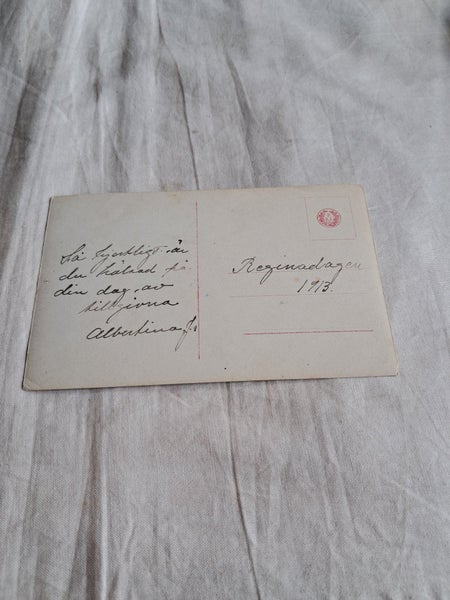 Så hjertligt är
du hälsad på
din dag av
tillgivna
Albertina
Reginadagen
1913.